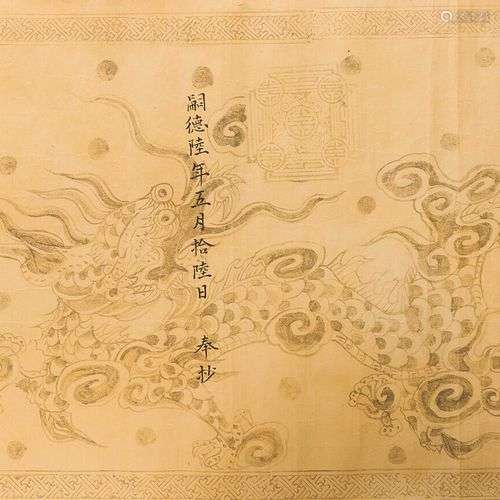 嗣德陸年五月拾陸日 奉抄